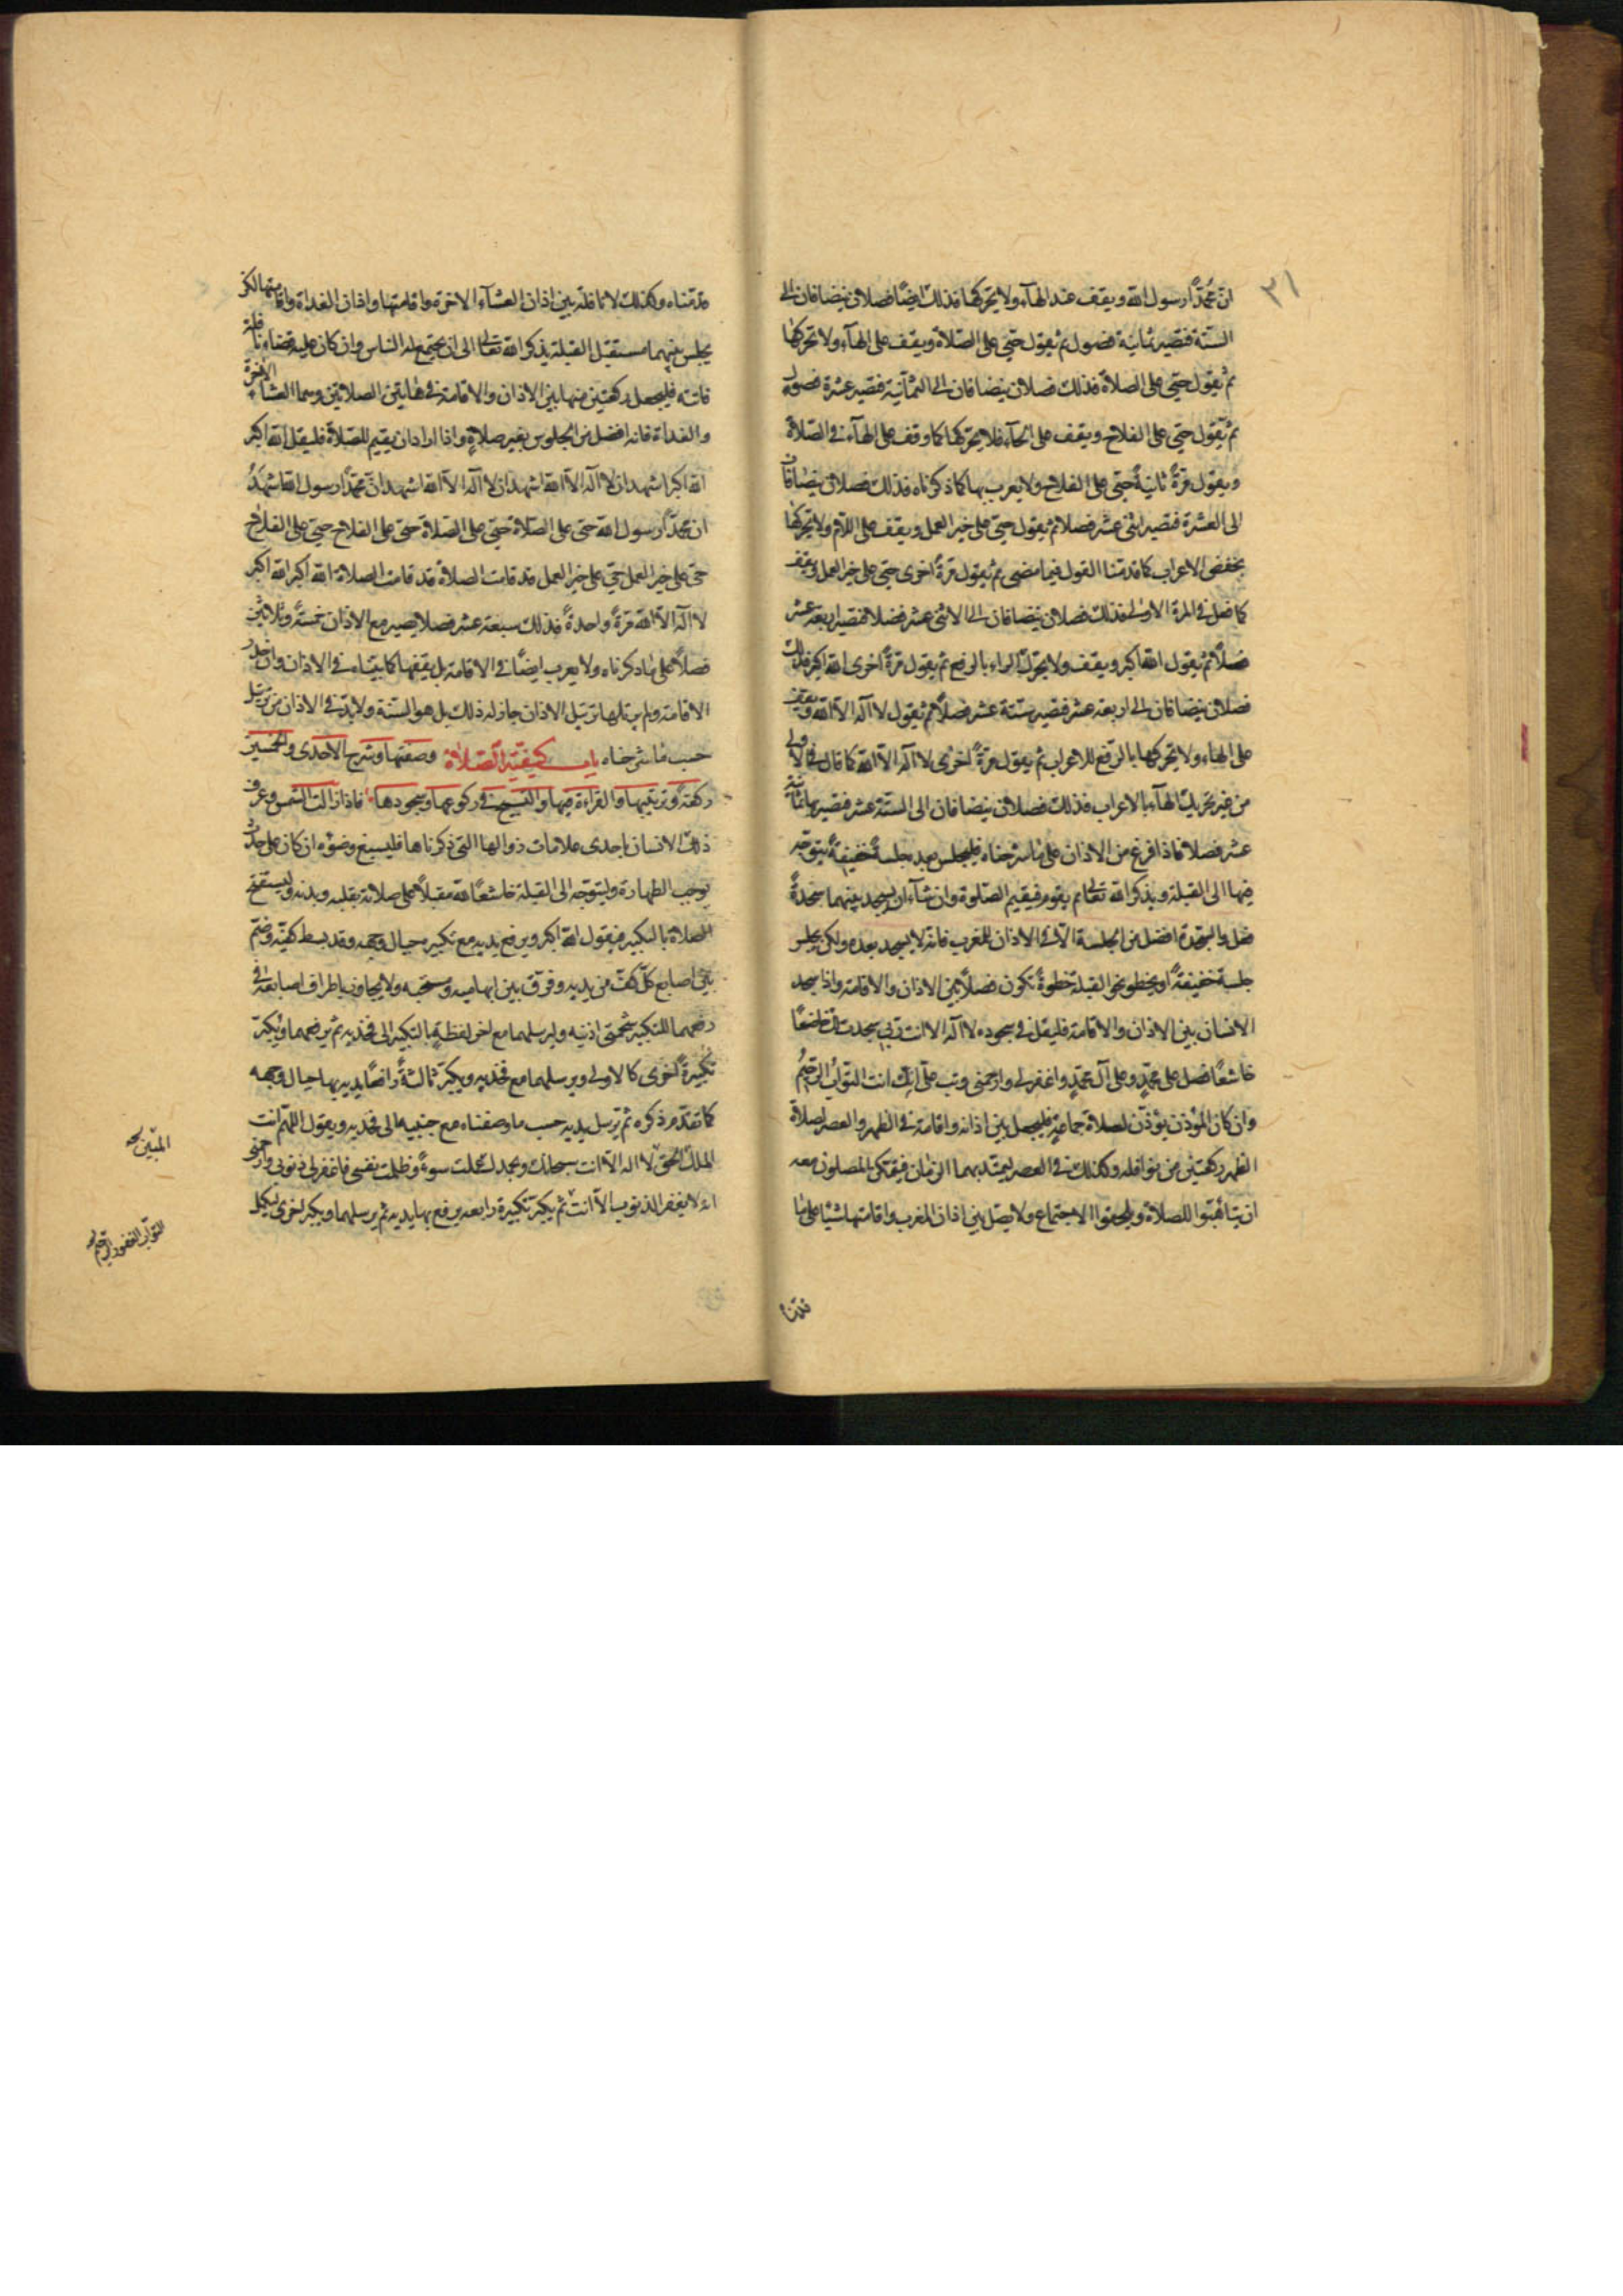 ٣١
انّ محمّداً رسول الله ويقف عند الهآء ولا يحركها فذلك ايضاً فصلان يضافان الى
الستة فتصير ثمانية فصول ثم يقول حيّ على الصّلاة ويقف على الهآء ولا تحركها
ثم يقول حيّ على الصلاة فذلك فصلان يضافان الى الثمانية فتصير عشرة فصول
ثم يقول حيّ على الفلاح ويقف على الحآء فلا يحرّكها كما وقف على الهآء في الصّلاة
ويقول مرّةً ثانيةً حيّ على الفلاح ولا يعرب بها كما ذكرناه فذلك فصلان يضافان
الى العشرة فتصير اثنى عشر فصلا ثم يقول حيّ على خير العمل ويقف على اللام ولا يحركها
بخفض الاعراب كما قدمنا القول فيما مضى ثم يقول مرةً اخرى حيّ على خير العمل ويقف
كما فعل في المرة الاولى فذلك فصلان يضافان الى الاثنى عشر فصلا فتصير اربعة عشر
فصلاً ثم يقول الله اكبر ويقف ولا يحرّك الراء بالرفع ثم يقول مرةً اخرى الله اكبر فذلك
فصلان يضافان الى اربعة عشر فتصير ستّة عشر فصلاً ثم يقول لا اله الا الله ويقف
على الهاء ولا يحركها بالرّفع للاعراب ثم يقول مرةً اخرى لا اله الا الله كما قال في الاولى
من غير تحريك الهآء بالاعراب فذلك فصلان يضافان الى الستّة عشر فتصير بها ثمانية
عشر فصلا فاذا فرغ من الاذان على ما شرحناه فليجلس بعده جلسةً خفيفةً يتوجّه
فيها الى القبلة ويذكر الله تعالى ثم يقوم فيقيم الصّلوة وان شآء ان يسجد بينهما سجدةً
فعل والسّجدة افضل من الجلسة الّا في الاذان للمغرب فانه لا يسجد بعده ولكن يجلس
جلسة خفيفةً او يخطو نحو القبلة خطوةً تكون فصلاً بين الاذان والاقامة واذا سجد
الانسان بين الاذان والاقامة فليقل في سجوده لا اله الا انت ربّي سجدت لك خاضعًا
خاشعًا فصل على محمّدٍ وعلى آل محمّدٍ واغفر لي وارحمني وتب عليّ انّك انت التوّاب الرّحيم
وان كان المؤذن يؤذّن لصلاة جماعةٍ فليجعل بين اذانه واقامته في الظهر والعصر لصلاة
الظهر ركعتين من نوافله وكذلك في العصر ليمتدّ بهما الزمان فيتمكن المصلون معه
ان يتأهّبوا للصلاة ويلحقوا الاجتماع ولا يصلّ بين اذان المغرب واقامتها شيئا على ما
قدّمناه
قدّمناه وكذلك لا نافلة بين اذان العشآء الاخرة واقامتها واذان الغداة واقامتها لكن
يجلس بينهما مستقبل القبلة يذكر الله تعالى الى ان يجتمع له الناس وان كان عليه قضاء نافلة
فاتته فليجعل ركعتين منها بين الاذان والاقامة في هاتين الصلاتين وهما العشاء الاخرة
والغداة فانه افضل من الجلوس بغير صلاةٍ واذا اراد ان يقيم للصّلاة فليقل الله اكبر
الله اكبر اشهد ان لا اله الّا الله اشهد ان لا اله الّا الله اشهد انّ محمّداً رسول الله اشهد
ان محمّداً رسول الله حيّ على الصّلاة حيّ على الصّلاة حيّ على الفلاح حيّ على الفلاح
حيّ على خير العمل حيّ على خير العمل قد قامت الصلاة قد قامت الصلاة الله اكبر الله اكبر
لا اله الّا الله مرةً واحدةً فذلك سبعة عشر فصلا يصير مع الاذان خمسةً وثلاثين
فصلاً على ما ذكرناه ولا يعرب ايضًا في الاقامة بل يقفها كما بيّناه في الاذان وان حدر
الاقامة ولم يرتلها ترتيل الاذان جاز له ذلك بل هو السنة ولا بدّ في الاذان من ترتيل
حسب ما شرحناه باب كيفيّة الصّلاة وصفتها وشرح الاحدى والخمسين
ركعةً وترتيبها والقراءة فيها والتسبيح في ركوعها وسجودها فاذا زالت الشمس وعرف
ذلك الانسان باحدى علامات زوالها التي ذكرناها فليسبغ وضوئه ان كان على حدث
يوجب الطهارة وليتوجّه الى القبلة خاشعًا لله مقبلاً على صلاته بقلبه وبدنه وليستفتح
الصلاة بالتكبير فيقول الله اكبر ويرفع يديه مع تكبيره حيال وجهه وقد بسط كفيّه وضمّ
بين اصابع كلّ كفّ من يديه وفرّق بين ابهاميه ومسبّحيه ولا يجاوز باطراف اصابعه في
رفعهما للتكبير شحمتي اذنيه وليرسلهما مع اخر لفظه بالتكبير الى فخذيه ثم يرفعهما ويكبّر
تكبيرةً اخرى كالاولى ويرسلهما مع فخذيه ويكبّر ثالثةً رافعًا يديه بها حيال وجهه
كما تقدّم ذكره ثم يرسل يديه حسب ما وصفناه مع جنبيه الى فخذيه ويقول اللهمّ انت
الملك الحقّ لا اله الّا انت سبحانك وبحمدك عملت سوءً وظلمت نفسي فاغفر لي ذنوبي وارحمني
انه لا يغفر الذنوب الّا انت ثم يكبّر تكبيرة رابعة يرفع بها يديه ثم يرسلهما ويكبر اخرى ليكمل
المبين صح
التوّاب الغفور الرّحيم صح